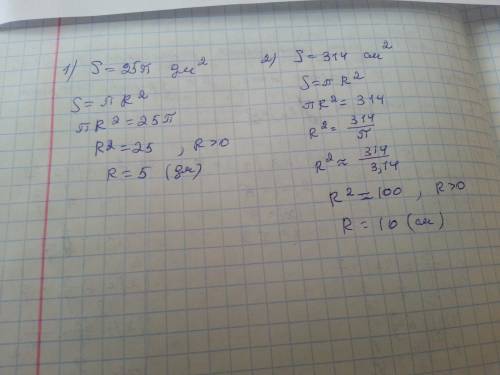 1) S = 25π дм²
S = π R²
πR² = 25π
R² = 25 , R > 0
R = 5 (дм)
2) S = 314 см²
S = π R²
πR² = 314
R² = 314/π
R² ≈ 314/3,14
R² ≈ 100 , R > 0
R = 10 (см)